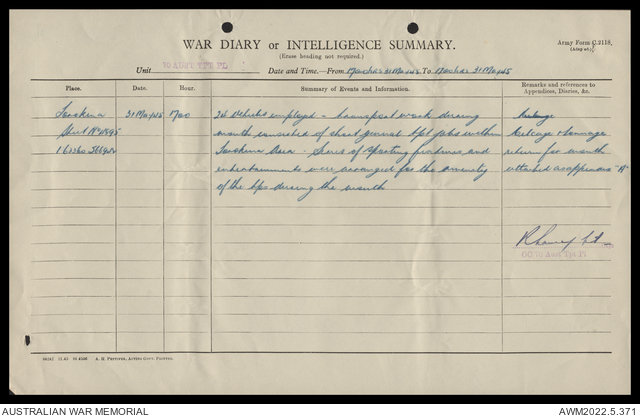 WAR DIARY or INTELLIGENCE SUMMARY.
Army Form C.2118,
(Erase heading not required.)
Unit 10 AUST TPT PL Date and Time—From 31 May 45 To 31 May 45
Place. Date. Hour. Summary of Events and Information. Remarks and references to Appendices, Diaries, &c.
Torokina 31 May 45 1700 24 Vehicles employed - transport work during
month consisted of short general tpt jobs within
Torokina Area. Series of sporting fixtures and
entertainments were arranged for the amenity
of the tps during the month
Mileage & tonnage
return for month
attached as appendix "A"
Lt
OC 10 Aust Tpt Pl
A. H. PETTIFER, ACTING GOVT. PRINTER.
AUSTRALIAN WAR MEMORIAL
AWM2022.5.371